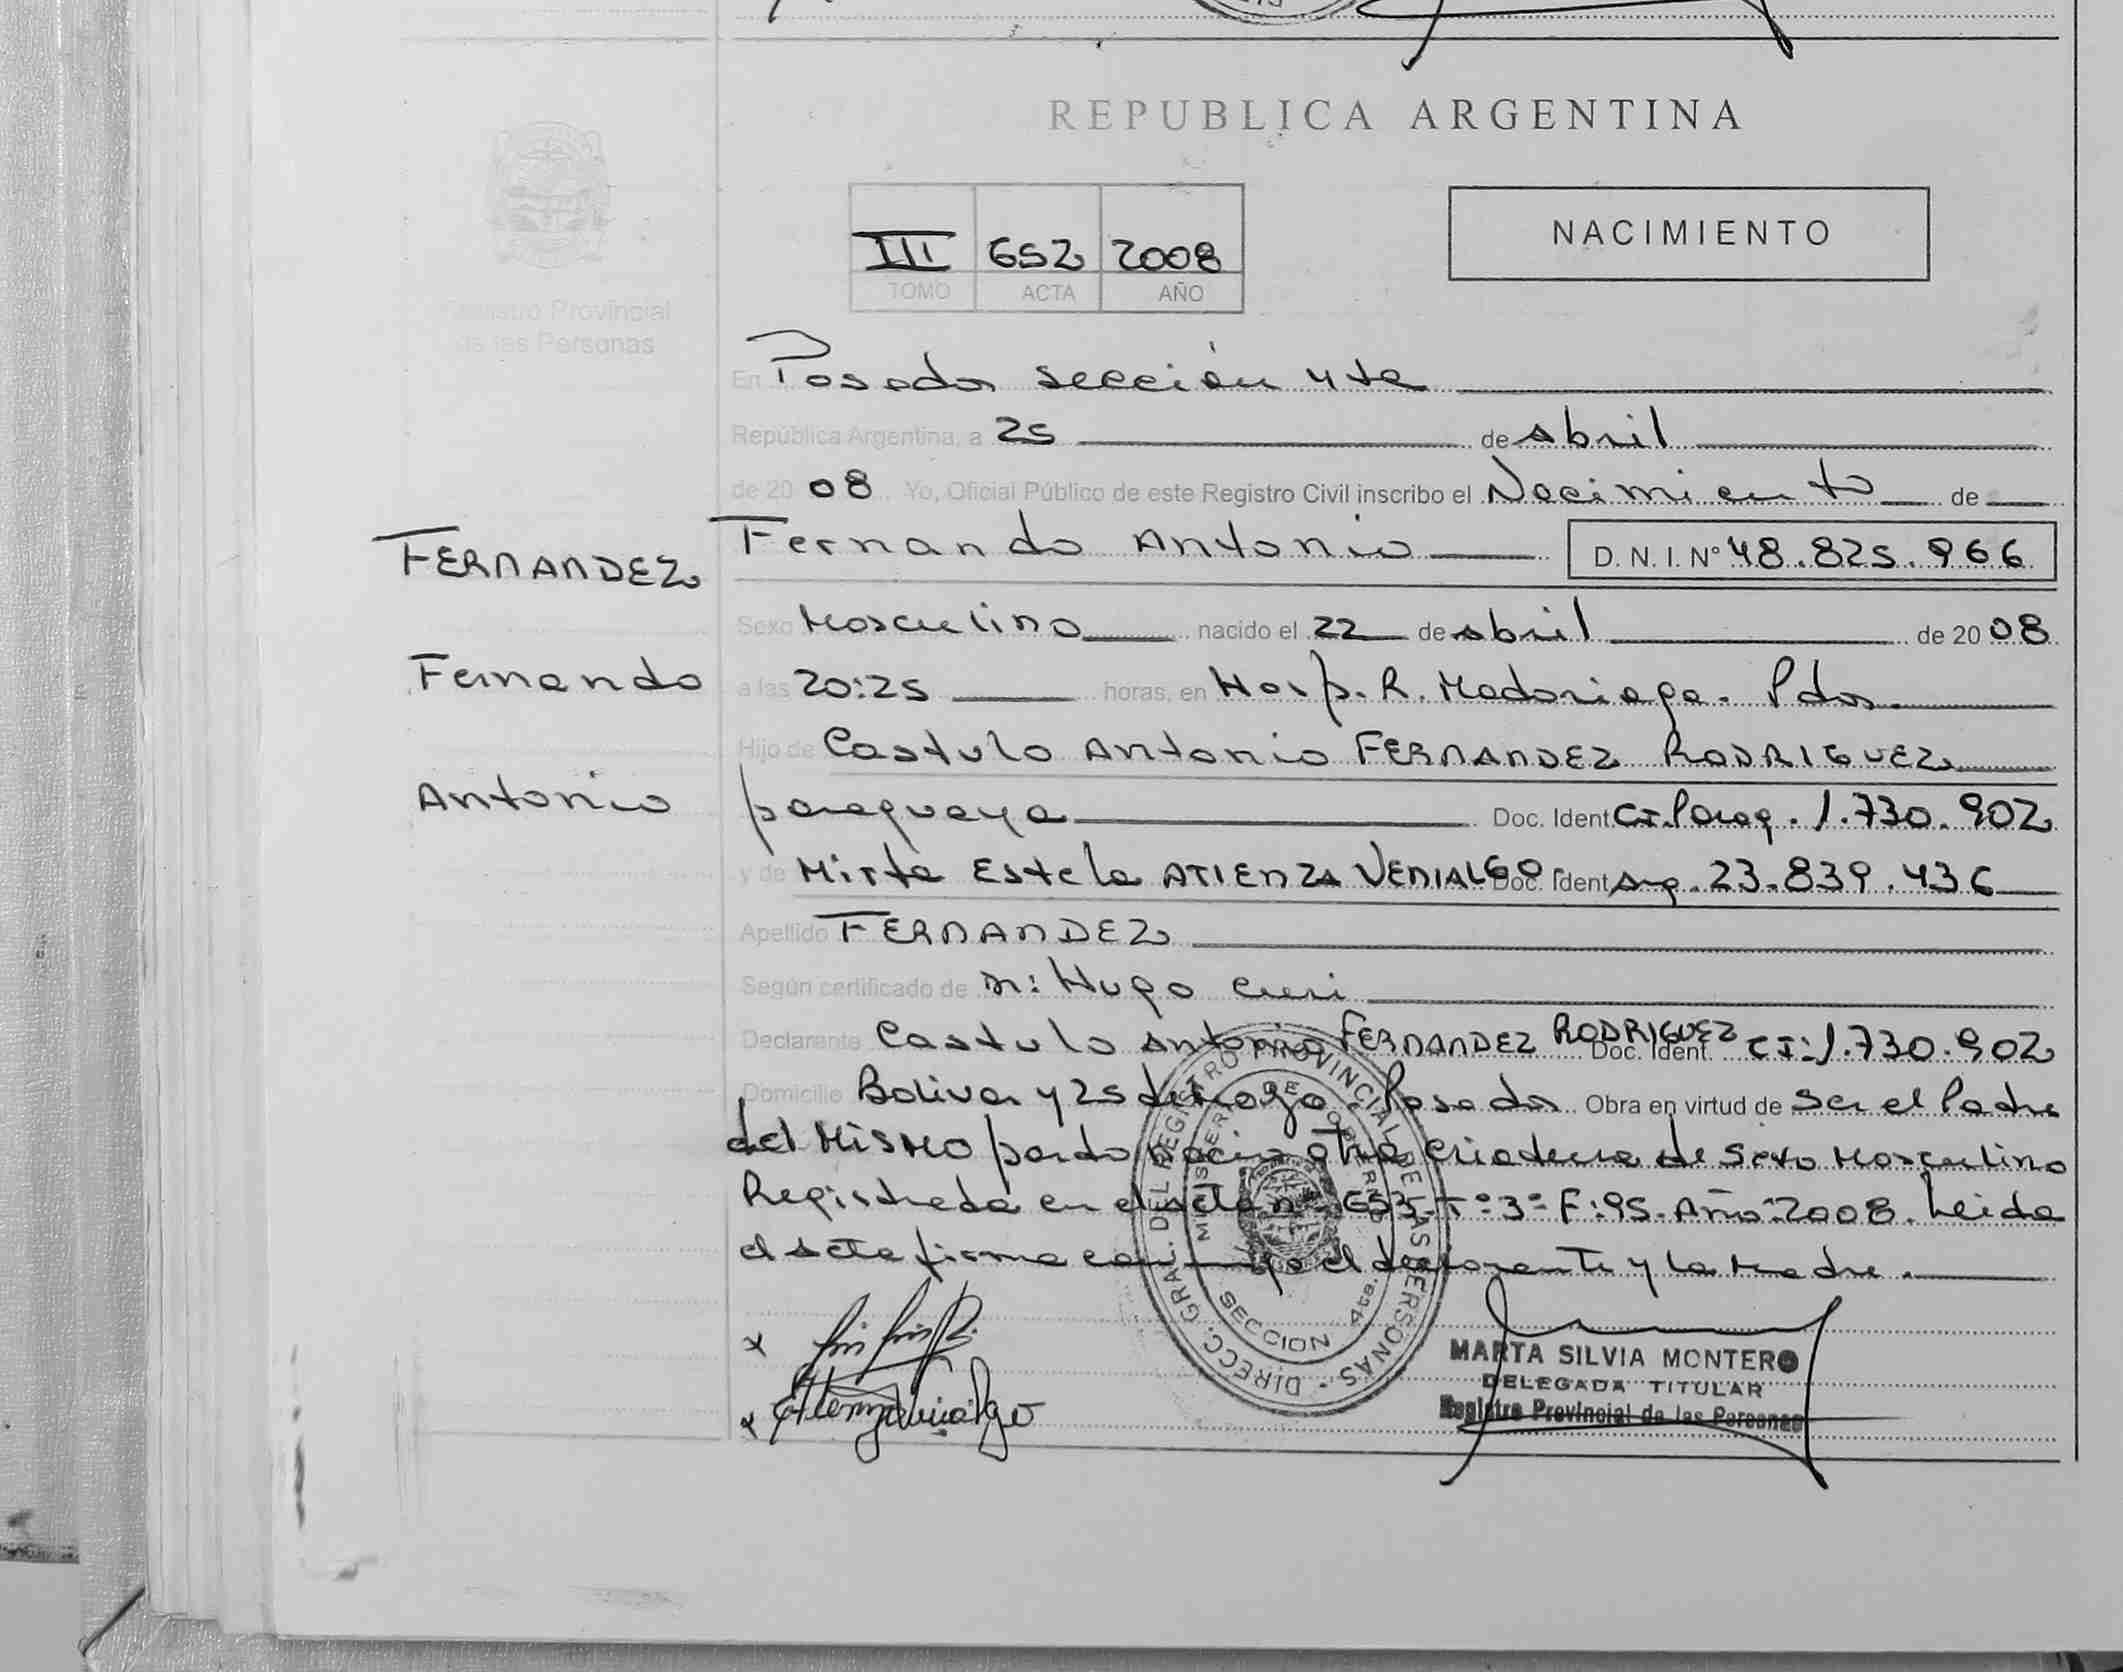 REPUBLICA ARGENTINA
NACIMIENTO
III 652 2008
TOMO ACTA AÑO
Registro Provincial
de las Personas
En Posadas sección 4ta
República Argentina, a 25 de abril
de 20 08 Yo, Oficial Público de este Registro Civil inscribo el Nacimiento de
Fernando Antonio D. N. I. Nº 48.825.966
FERNANDEZ
Fernando
Antonio
Sexo Masculino nacido el 22 de abril de 20 08
a las 20:25 horas, en Hosp. R. Madariaga. Pdas
Hijo de Castulo Antonio FERNANDEZ RODRIGUEZ
paraguaya Doc. Ident C.I. Parag. 1.730.902
y de Mirta Estela ATIENZA VENIALGO Doc. Ident Arg. 23.839.436
Apellido FERNANDEZ
Según certificado de Dr: Hugo
Declarante Castulo Antonio FERNANDEZ RODRIGUEZ Doc. Ident. CI: 1.730.902
Domicilio Bolivar y 25 de mayo. Posadas Obra en virtud de ser el Padre
del Mismo parto nacio otra criatura de sexo Masculino
Registrada en el acta nº 653 - Tº 3º F: 95. Año: 2008. Leida
el acta firma conmigo el declarante y la Madre.
DIRECC. GRAL. DEL REGISTRO PROVINCIAL DE LAS PERSONAS
MINISTERIO DE GOBIERNO
SECCION 4ta.
MARTA SILVIA MONTERO
DELEGADA TITULAR
Registro Provincial de las Personas